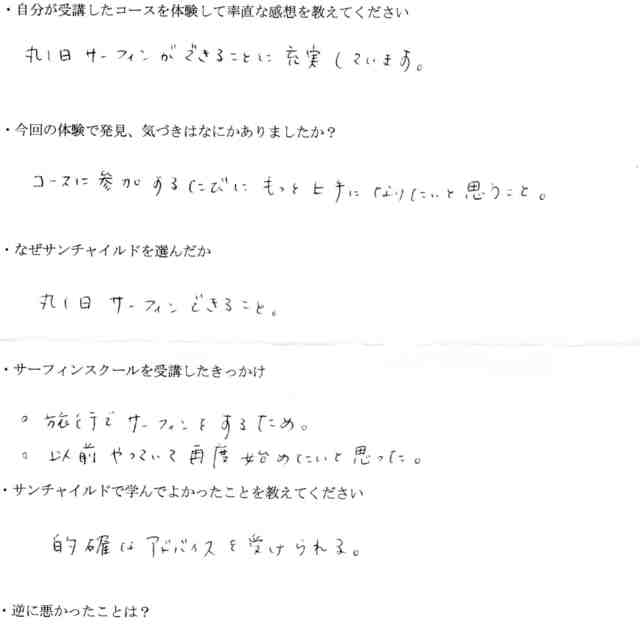 ・自分が受講したコースを体験して率直な感想を教えてください
丸1日サーフィンができることに充実しています。
・今回の体験で発見、気づきはなにかありましたか？
コースに参加するたびにもっと上手になりたいと思うこと。
・なぜサンチャイルドを選んだか
丸1日サーフィンできること。
・サーフィンスクールを受講したきっかけ
○ 旅行でサーフィンをするため。
○ 以前やっていて再度始めたいと思った。
・サンチャイルドで学んでよかったことを教えてください
的確なアドバイスを受けられる。
・逆に悪かったことは？